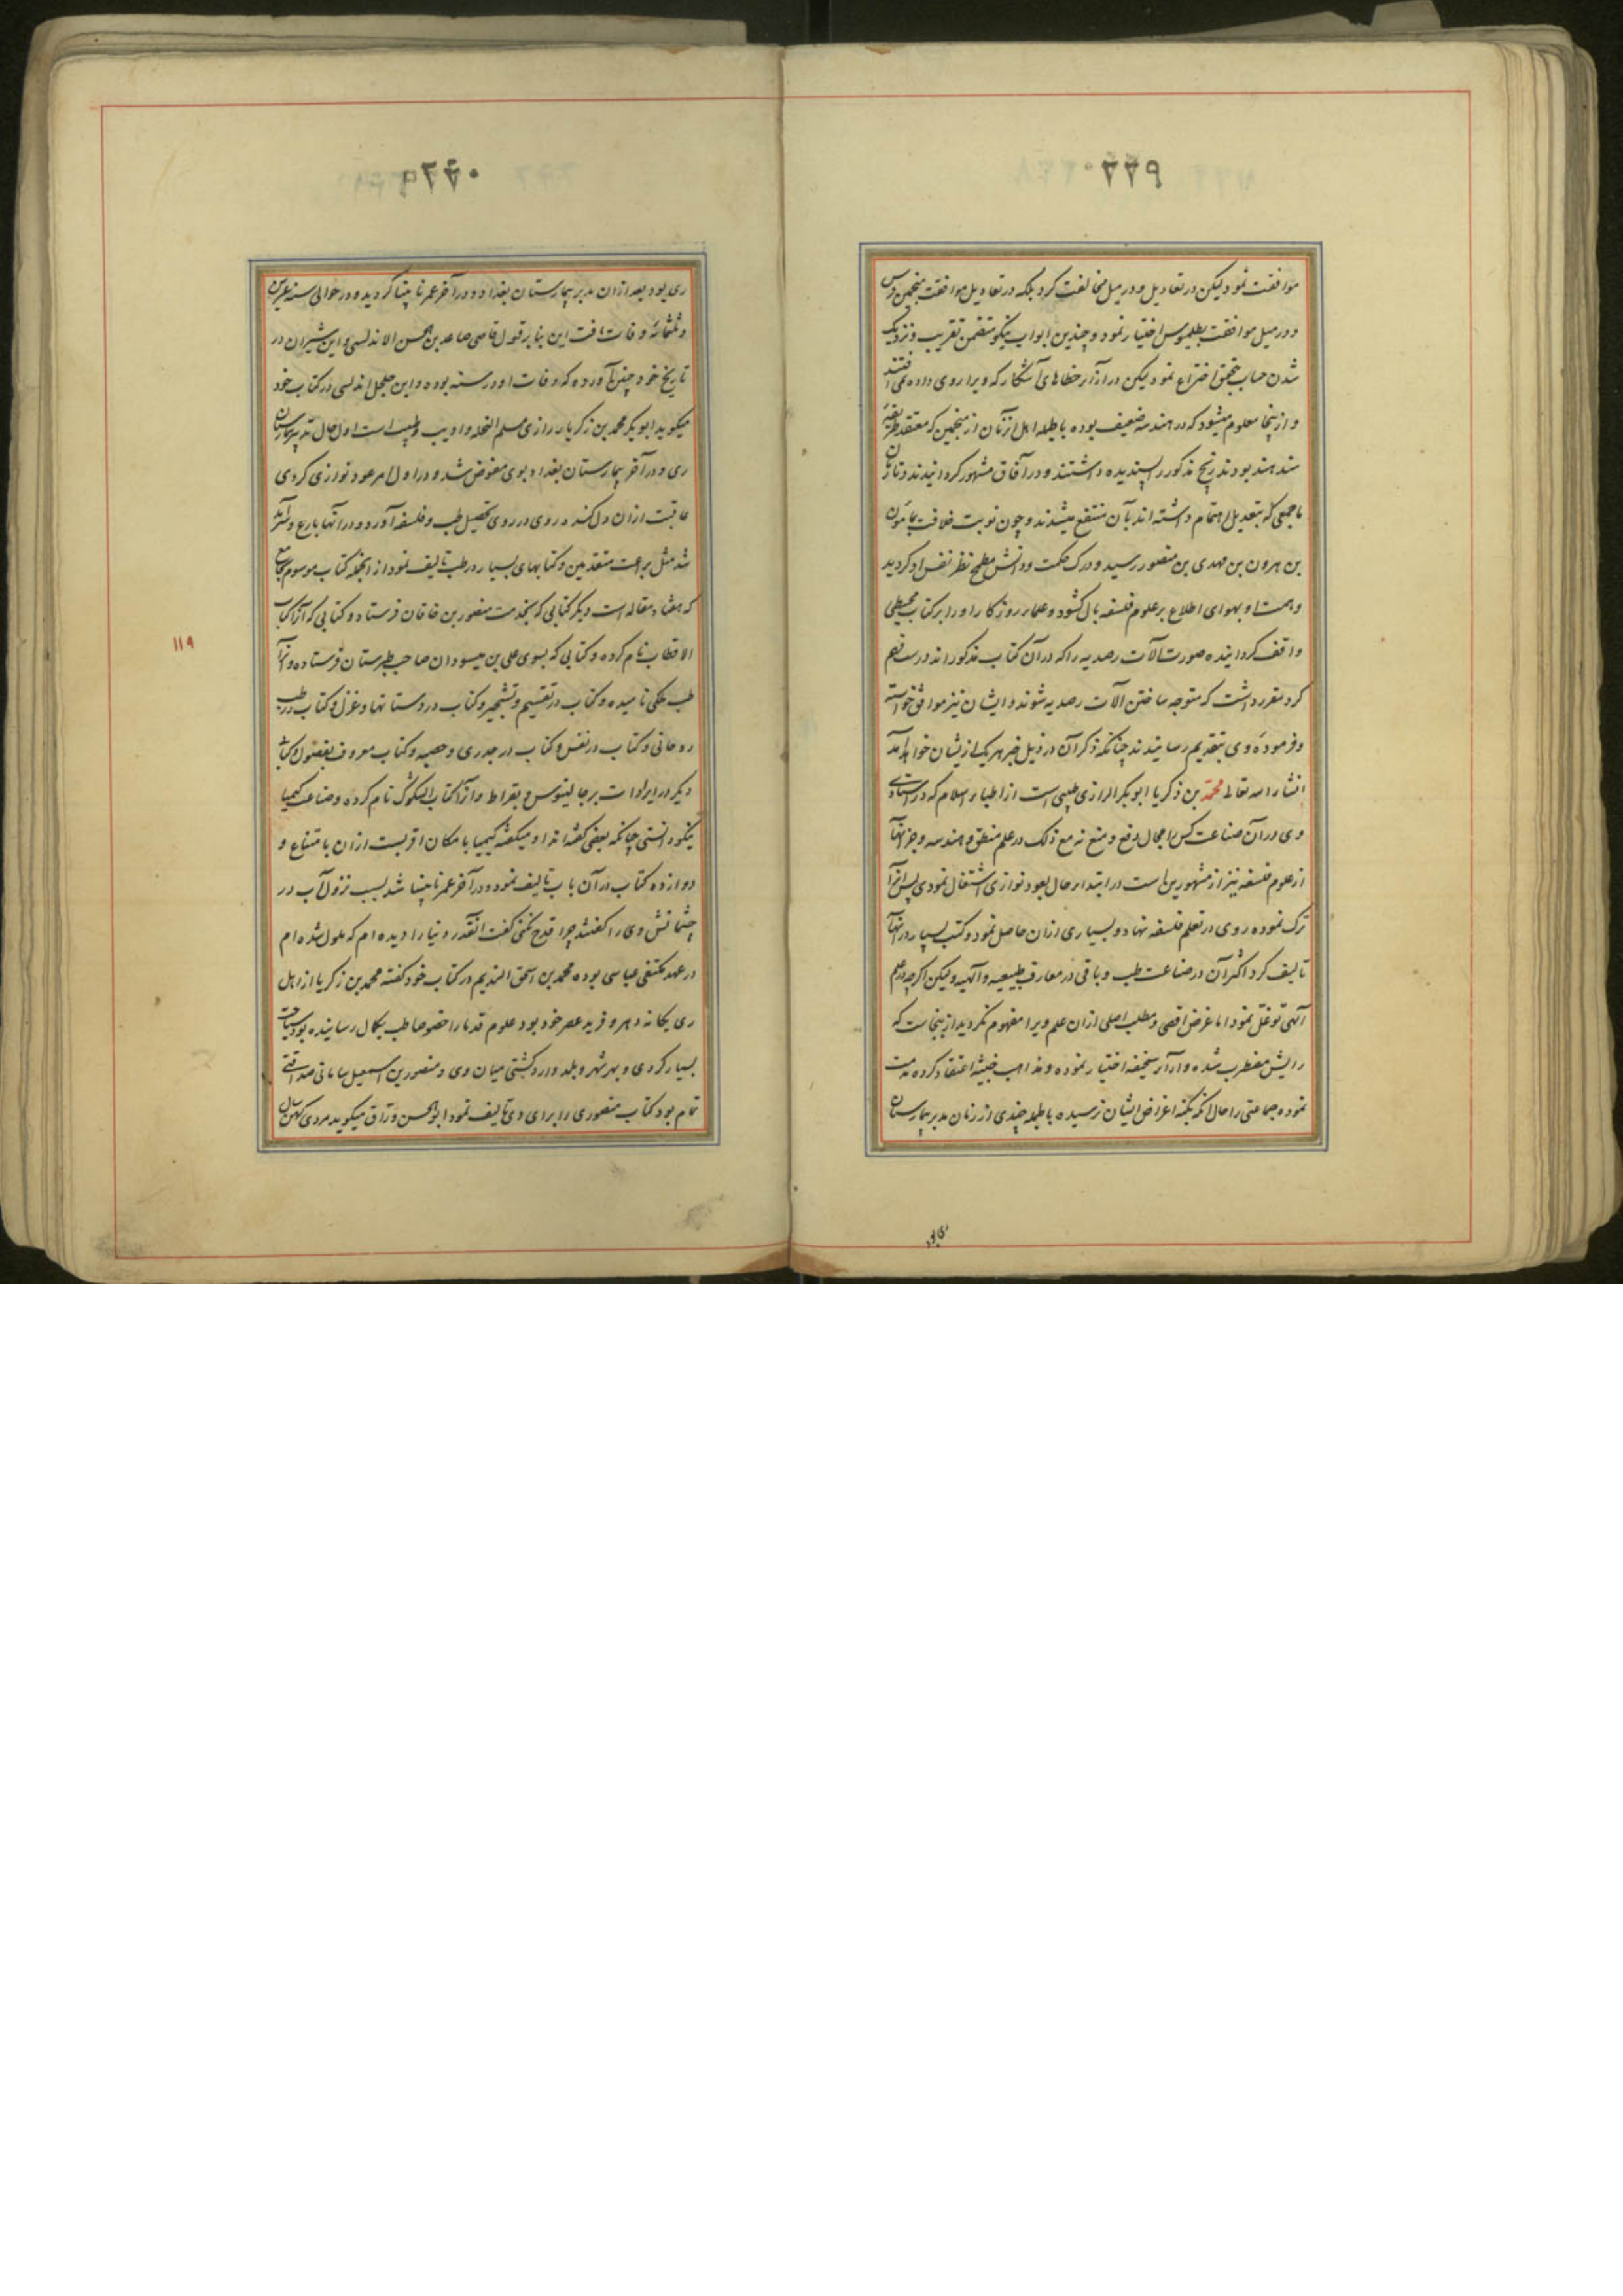 ۲۲۹
موافقت نمود لیکن در تعادیل و در میل مخالفت کرد بلکه در تعادیل موافقت منجمین فرس
و در میل موافقت بطلیموس اختیار نمود و چندین ابواب نیکو متضمن تقریب و نزدیک
شدن حساب اختراع نمود لیکن در آن آثار خطاهای آشکار که ویرا روی داده
و از اینجا معلوم میشود که در هندسه ضعیف بوده باطله اهل آن زمان از منجمین که معتقد طریقهٔ
سند هند بودند زیج مذکور را پسندیده داشتند و در آفاق مشهور گردانیدند و تا آن
با جمعی که بتعدیل اهتمام داشته اند بآن منتفع میشدند و چون نوبت خلافت بمأمون
بن هرون بن مهدی بن منصور رسید و درک حکمت و دانش مطمح نظر نفس او گردید
و همت او بهوای اطلاع بر علوم فلسفه بال گشود و علماء روزگار او را بر کتاب مجسطی
واقف گردانیده صورت آلات رصدیه را که در آن کتاب مذکور اند درست فهم
کرد مقرر داشت که متوجه ساختن آلات رصدیه شوند و ایشان نیز موافق خواسته
و فرمودهٔ وی بتقدیم رسانیدند چنانکه ذکر آن در ذیل خبر هر یک از ایشان خواهد آمد
انشاء الله تعالی محمد بن زکریا ابو بکر الرازی طبیبی است از اطباء اسلام که در استادی
وی در آن صناعت کس را مجال دفع و منع نه مع ذلک در علم منطق و هندسه و جز آنها
از علوم فلسفه نیز از مشهورین است در ابتداء حال بعود نوازی اشتغال نمودی پس آنرا
ترک نموده روی در تعلم فلسفه نهاد و بسیاری از آن حاصل نمود و کتب بسیار در آنها
تالیف کرد اکثر آن در صناعت طب و باقی در معارف طبیعیه و آلهیه ولیکن اگرچه در علم
آلهی توغل نمود اما غرض اقصی و مطلب اصلی از آن علم ویرا مفهوم نگردید از اینجاست که
رایش مضطرب شده و آراء سخیفه اختیار نموده و مذاهب خبیثه اعتقاد کرده مذمت
نموده جماعتی را حال آنکه بکنه اغراض ایشان نرسیده باطله چندی از زمان مدبر بیمارستان
ری بود
۲۳۰
ری بود بعد از آن مدبر بیمارستان بغداد و در آخر عمر نابینا گردید و در حوالی سنه عشرین
و ثلثمائه وفات یافت این بنا بر قول قاضی صاعد بن الحسن الاندلسی و ابن شیران در
تاریخ خود چنین آورده که وفات او در سنه بوده و ابن جلجل اندلسی در کتاب خود
میگوید ابو بکر محمد بن زکریاء رازی مسلم النحله و ادیب و طبیب است اول حال تدبیر بیمارستان
ری و در آخر بیمارستان بغداد بوی مفوض شد و در اول امر عود نوازی کردی
عاقبت از آن دل کنده روی در روی تحصیل طب و فلسفه آورد و در آنها بارع و سرآمد
شد مثل براعت متقدمین و کتابهای بسیار در طب تالیف نمود از آنجمله کتاب موسوم بجامع
که هفتاد مقاله است دیگر کتابی که بخدمت منصور بن خاقان فرستاد و کتابی که آنرا کتاب
الاقطاب نام کرده و کتابی که بسوی علی بن میسودان صاحب طبرستان فرستاده و آنرا
طب ملکی نامیده و کتاب در تقسیم و تشجیر و کتاب در دستانها و غزل و کتاب در طب
روحانی و کتاب در نفس و کتاب در جدری و حصبه و کتاب معروف بفصول و کتاب
دیگر در ایرادات بر جالینوس و بقراط و آنرا کتاب الشکوک نام کرده و صناعت کیمیا
نیکو دانستی چنانکه بعضی گفته اند او میگفته کیمیا بامکان اقربست از آن بامتناع و
دوازده کتاب در آن باب تالیف نموده در آخر عمر نابینا شد بسبب نزول آب در
چشمانش وی را گفتند چرا قدح نکنی گفت آنقدر دنیا را دیده ام که ملول شده ام
در عهد مکتفی عباسی بوده محمد بن اسحق الندیم در کتاب خود گفته محمد بن زکریا از اهل
ری یگانه دهر و فرید عصر خود بود علوم قدما را خصوصا طب بکمال رسانیده بود سیاحت
بسیار کردی و بهر شهر و بلد وارد گشتی میان وی و منصور بن اسمعیل سامانی صداقتی
تمام بود کتاب منصوری را برای وی تالیف نمود ابو الحسن وراق میگوید مردی کهن سال
۱۱۹